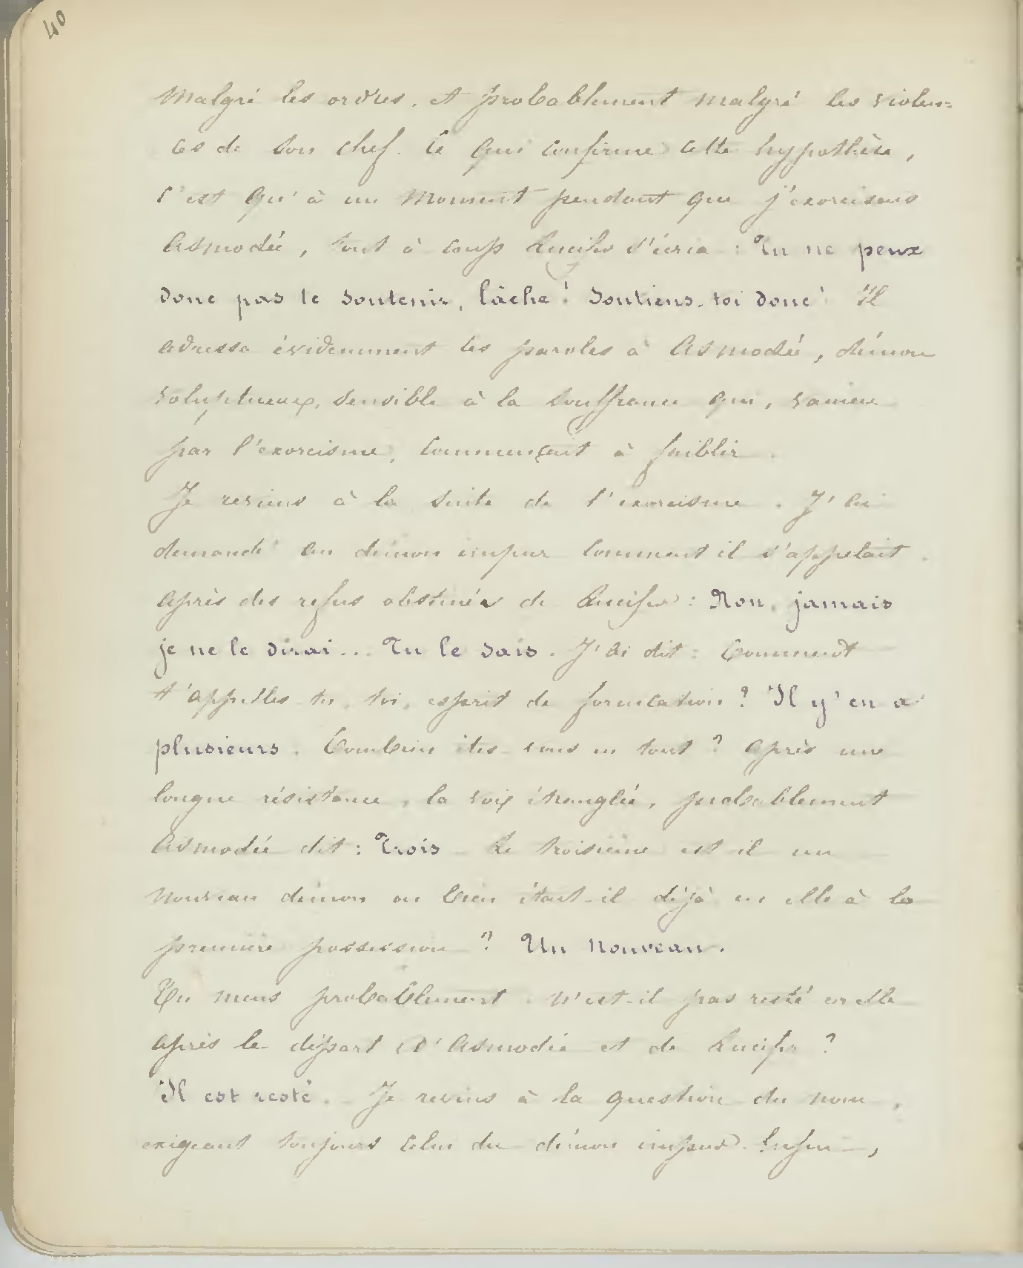 40
Malgré les ordres, et probablement malgré les violen=
ces de son chef. Ce qui confirme cette hypothèse,
c'est qu'à un moment pendant que j'exorcisais
Asmodée, tout à coup Lucifer s'écria : Tu ne peux
donc pas te soutenir, lâche ! Soutiens-toi donc ! Il
adressa évidemment ces paroles à Asmodée, démon
voluptueux, sensible à la souffrance qui, vaincu
par l'exorcisme, commençait à faiblir.
Je reviens à la suite de l'exorcisme. J'ai
demandé au démon impur comment il s'appelait.
Après des refus obstinés de Lucifer : Non, jamais
je ne le dirai... Tu le sais. J'ai dit : Comment
t'appelles-tu, toi, esprit de fornication ? Il y'en a
plusieurs. Combien êtes-vous en tout ? Après une
longue résistance, la voix étranglée, probablement
Asmodée dit : Trois - Le troisième est-il un
nouveau démon ou bien était-il déjà en elle à la
première possession ? Un nouveau.
Tu mens probablement. N'est-il pas resté en elle
après le départ d'Asmodée et de Lucifer ?
Il est resté. - Je revins à la question du nom,
exigeant toujours celui du démon impur. Enfin,